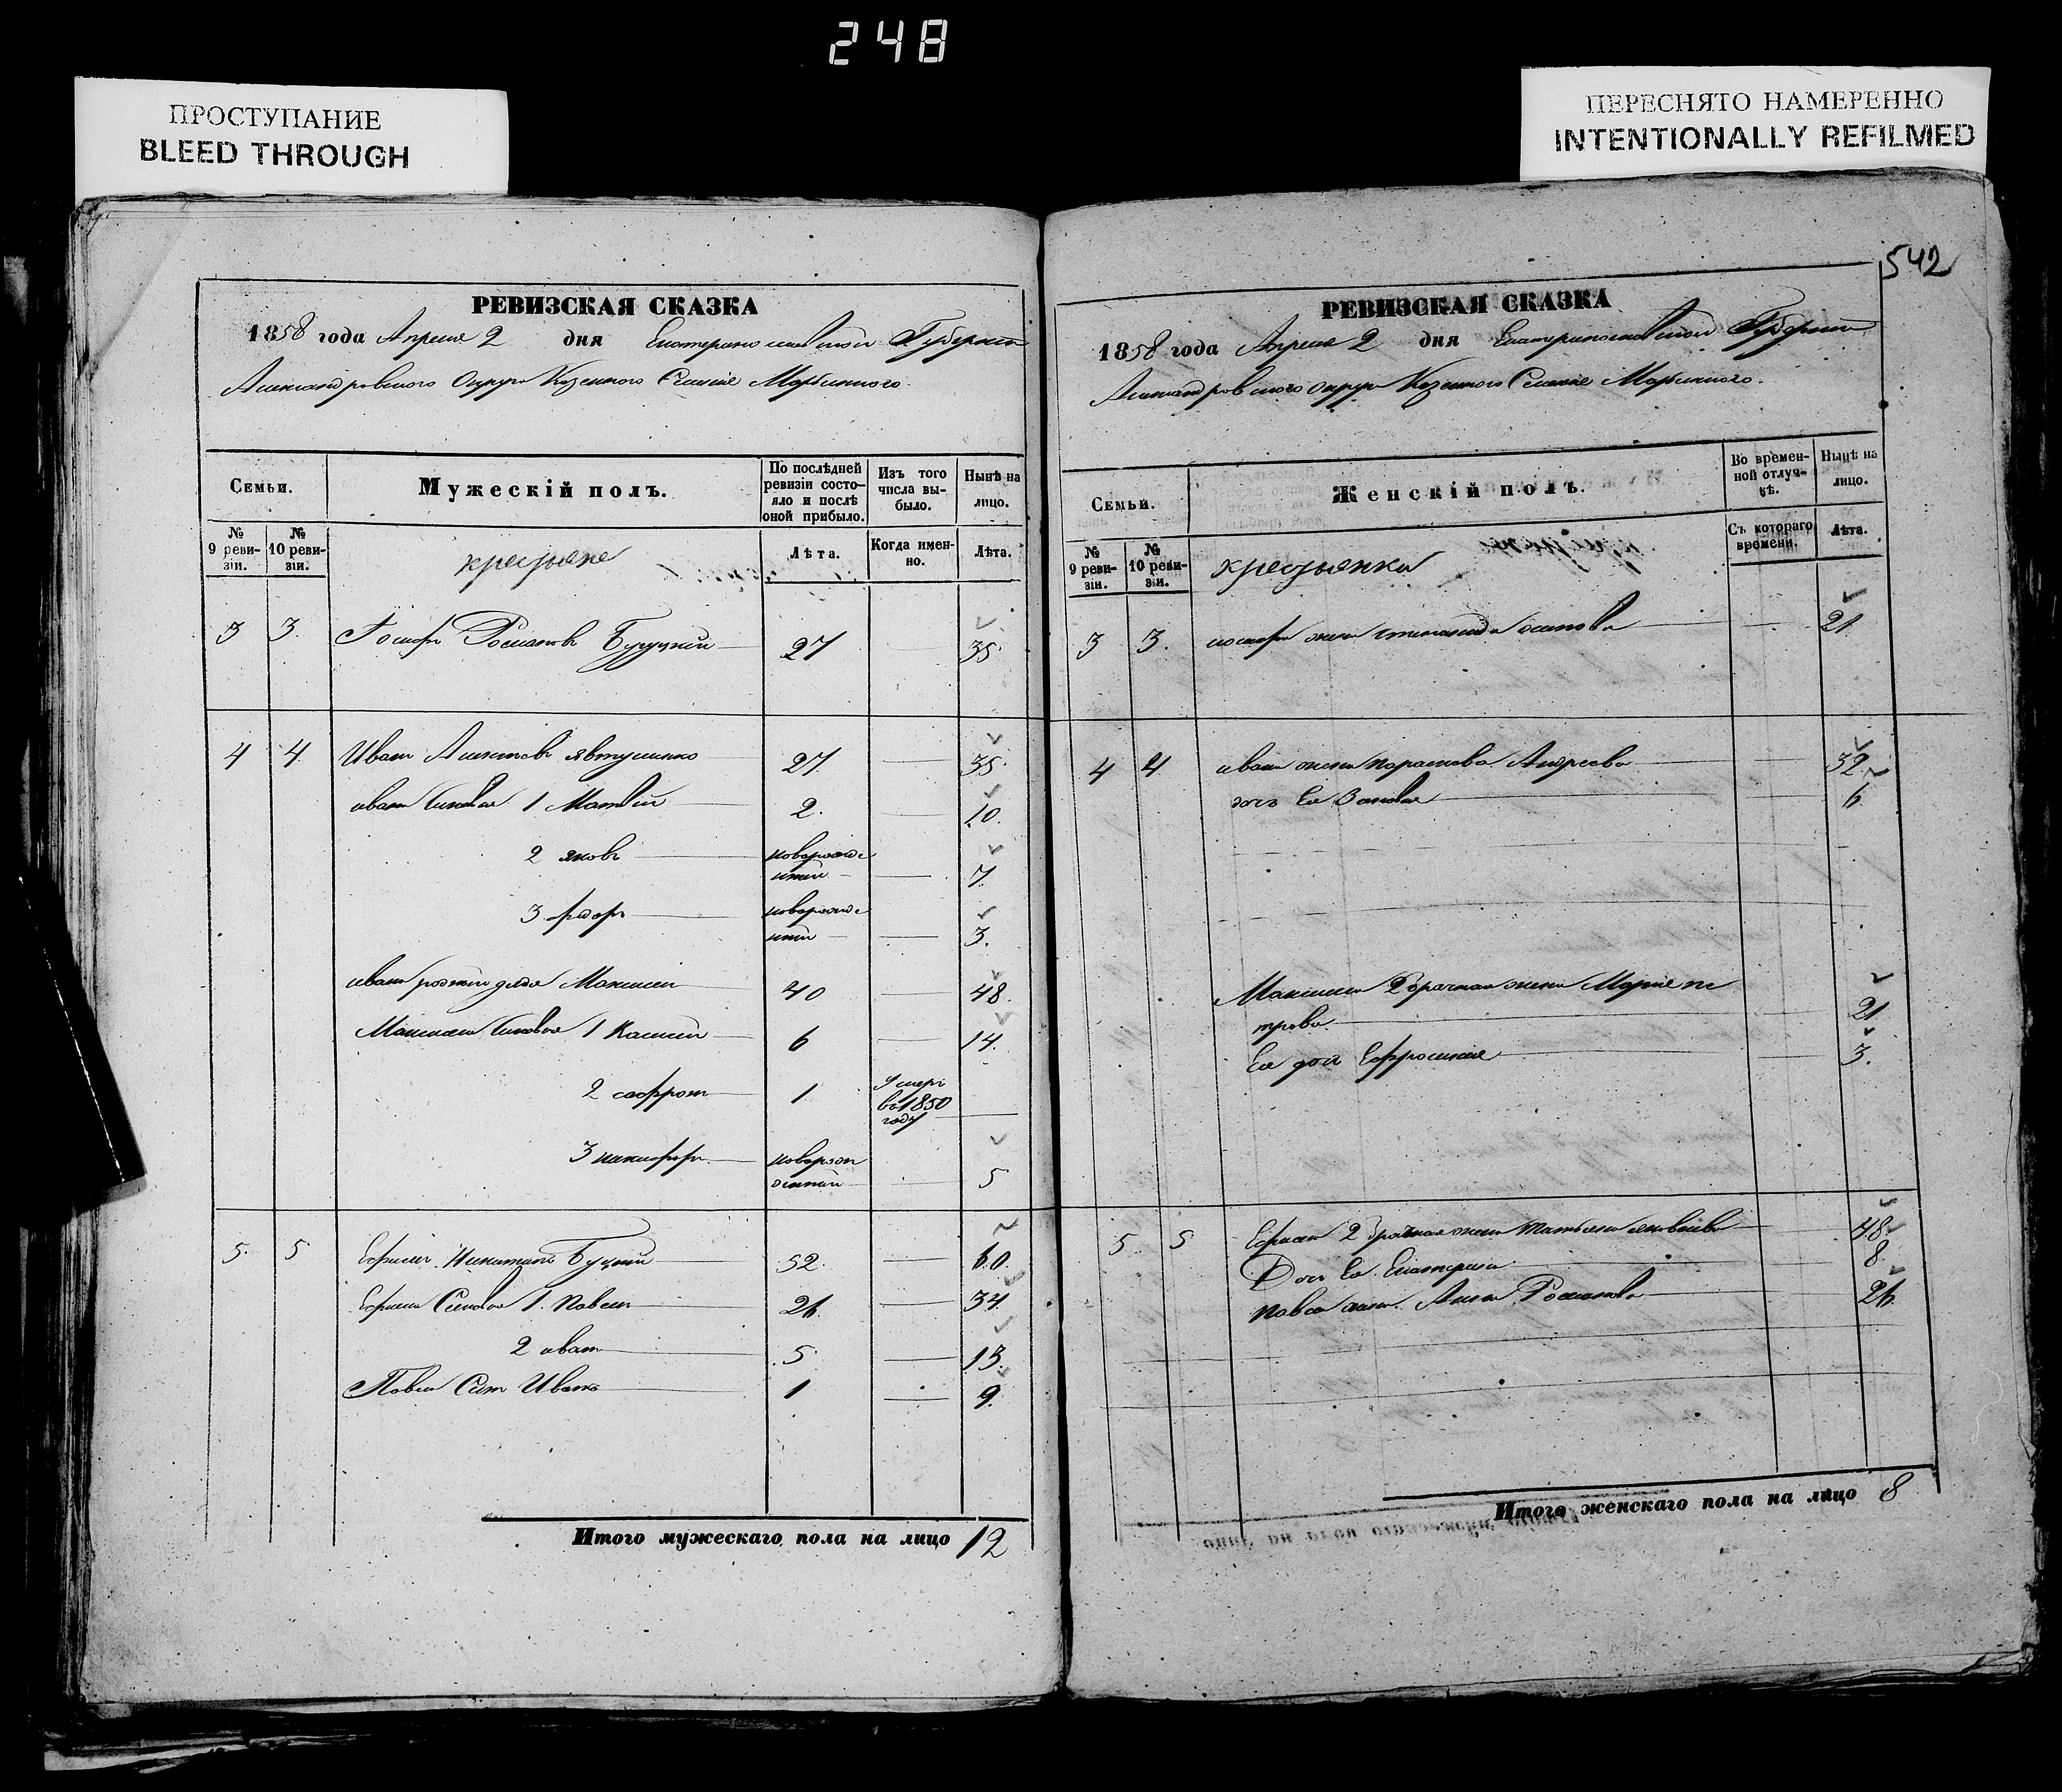 248
ПРОСТУПАНИЕ
BLEED THROUGH
ПЕРЕСНЯТО НАМЕРЕННО
INTENTIONALLY REFILMED
РЕВИЗСКАЯ СКАЗКА
1858 года Апреля 2 дня Екатеринославской Губернии
Александровского Округа Казенного Селения Марьинского.
Семьи.
Мужескій полъ.
По послѣдней ревизіи состо-
яло и послѣ
оной прибыло.
Изъ того
числа вы-
было.
Нынѣ на
лицо.
№
9 реви-
зіи.
№
10 реви-
зіи.
крестьяне
Лѣта.
Когда имен-
но.
Лѣта.
3 3. Иосифъ Романовъ 27 35
4 4 Иванъ Явтушенко 27 35
ивана Сыновья 1 Матвей 2. 10.
2 яковъ новорожде
нный 7
3 новорожде
нный 3.
ивана родной дядя Максим 40 48.
Максима Сыновья 1 6 14.
2 софрон 1 Умеръ
въ 1850
году
3 никифоръ новорож
денный 5
5. 5 Ефимъ Никитинъ Буцкий 52. 60.
Ефима Сыновья 1. Павел 26. 34.
2 иван 5 13.
Павла Сынъ Иванъ 1 9.
Итого мужескаго пола на лицо 12
542
РЕВИЗСКАЯ СКАЗКА
1858 года Апреля 2 дня Екатеринославской Губернии
Александровского округа Казенного Селения Марьинского.
Семьи.
Женскій полъ.
Во времен-
ной отлуч-
кѣ.
Нынѣ на
лицо.
№
9 реви-
зіи.
№
10 реви-
зіи.
крестьянки
Съ котораго
времени.
Лѣта.
3 3. иосифа жена степанида осипова 21
4 4 ивана жена параскева Андреева 32
дочь Ея 6
Максима 2 брачная жена Мария пе
трова 21
Ея дочь Ефросиния 3.
5 5 Ефима 2 брачная жена татьяна яковлева 48
Дочь Ея Екатерина 8
павла жена Анна Романова 26
Итого женскаго пола на лицо 8